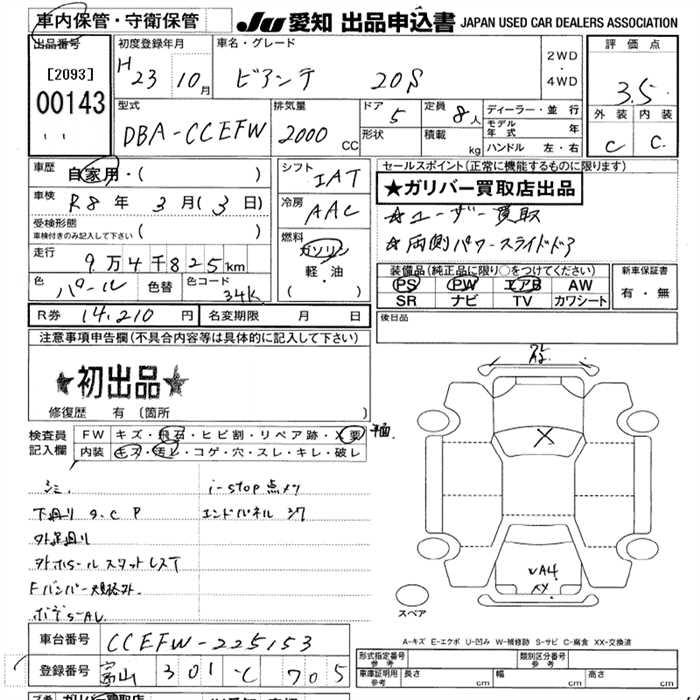 車内保管・守衛保管
JU 愛知 出品申込書 JAPAN USED CAR DEALERS ASSOCIATION
出品番号
[2093]
00143
初度登録年月
H 23 10月
車名・グレード
ビアンテ 20S
2WD
・
4WD
評価点
3.5
外装 内装
C C
型式
DBA-CCEFW
排気量
2000 CC
ドア
5
形状
定員
8人
積載
kg
ディーラー・並行
モデル年式 年
ハンドル 左・右
車歴
自家用・( )
車検
R8年 3月(3日)
受検形態
車検付きのみ記入して下さい ( )
走行
9万4千825km
色
パール
色替
色コード
34K
シフト
IAT
冷房
AAC
燃料
ガソリン
軽・油
( ・ )
セールスポイント(正常に機能するものに限ります)
★ガリバー買取店出品
☆ユーザー買取
☆両側パワースライドドア
装備品(純正品に限り○をつけてください)
PS PW エアB AW
SR ナビ TV カワシート
新車保証書
有・無
R券 14,210 円
名変期限 月 日
後日品
注意事項申告欄(不具合内容等は具体的に記入して下さい)
★初出品★
修復歴 有(箇所 )
検査員記入欄
FW キズ・飛石・ヒビ割・リペア跡・X要
内装 キズ・汚レ・コゲ・穴・スレ・キレ・破レ
シミ
i-stop点メツ
下廻り サ.C P
外足廻り
Fバンパー規格外
X
VA4
XX
スペア
A-キズ E-エクボ U-凹み W-補修跡 S-サビ C-腐食 XX-交換済
車台番号 CCEFW-225153
登録番号 富山 301 C 705
形式指定番号
参考
類別区分番号
参考
車庫証明用
参考
長さ cm
幅 cm
高さ cm